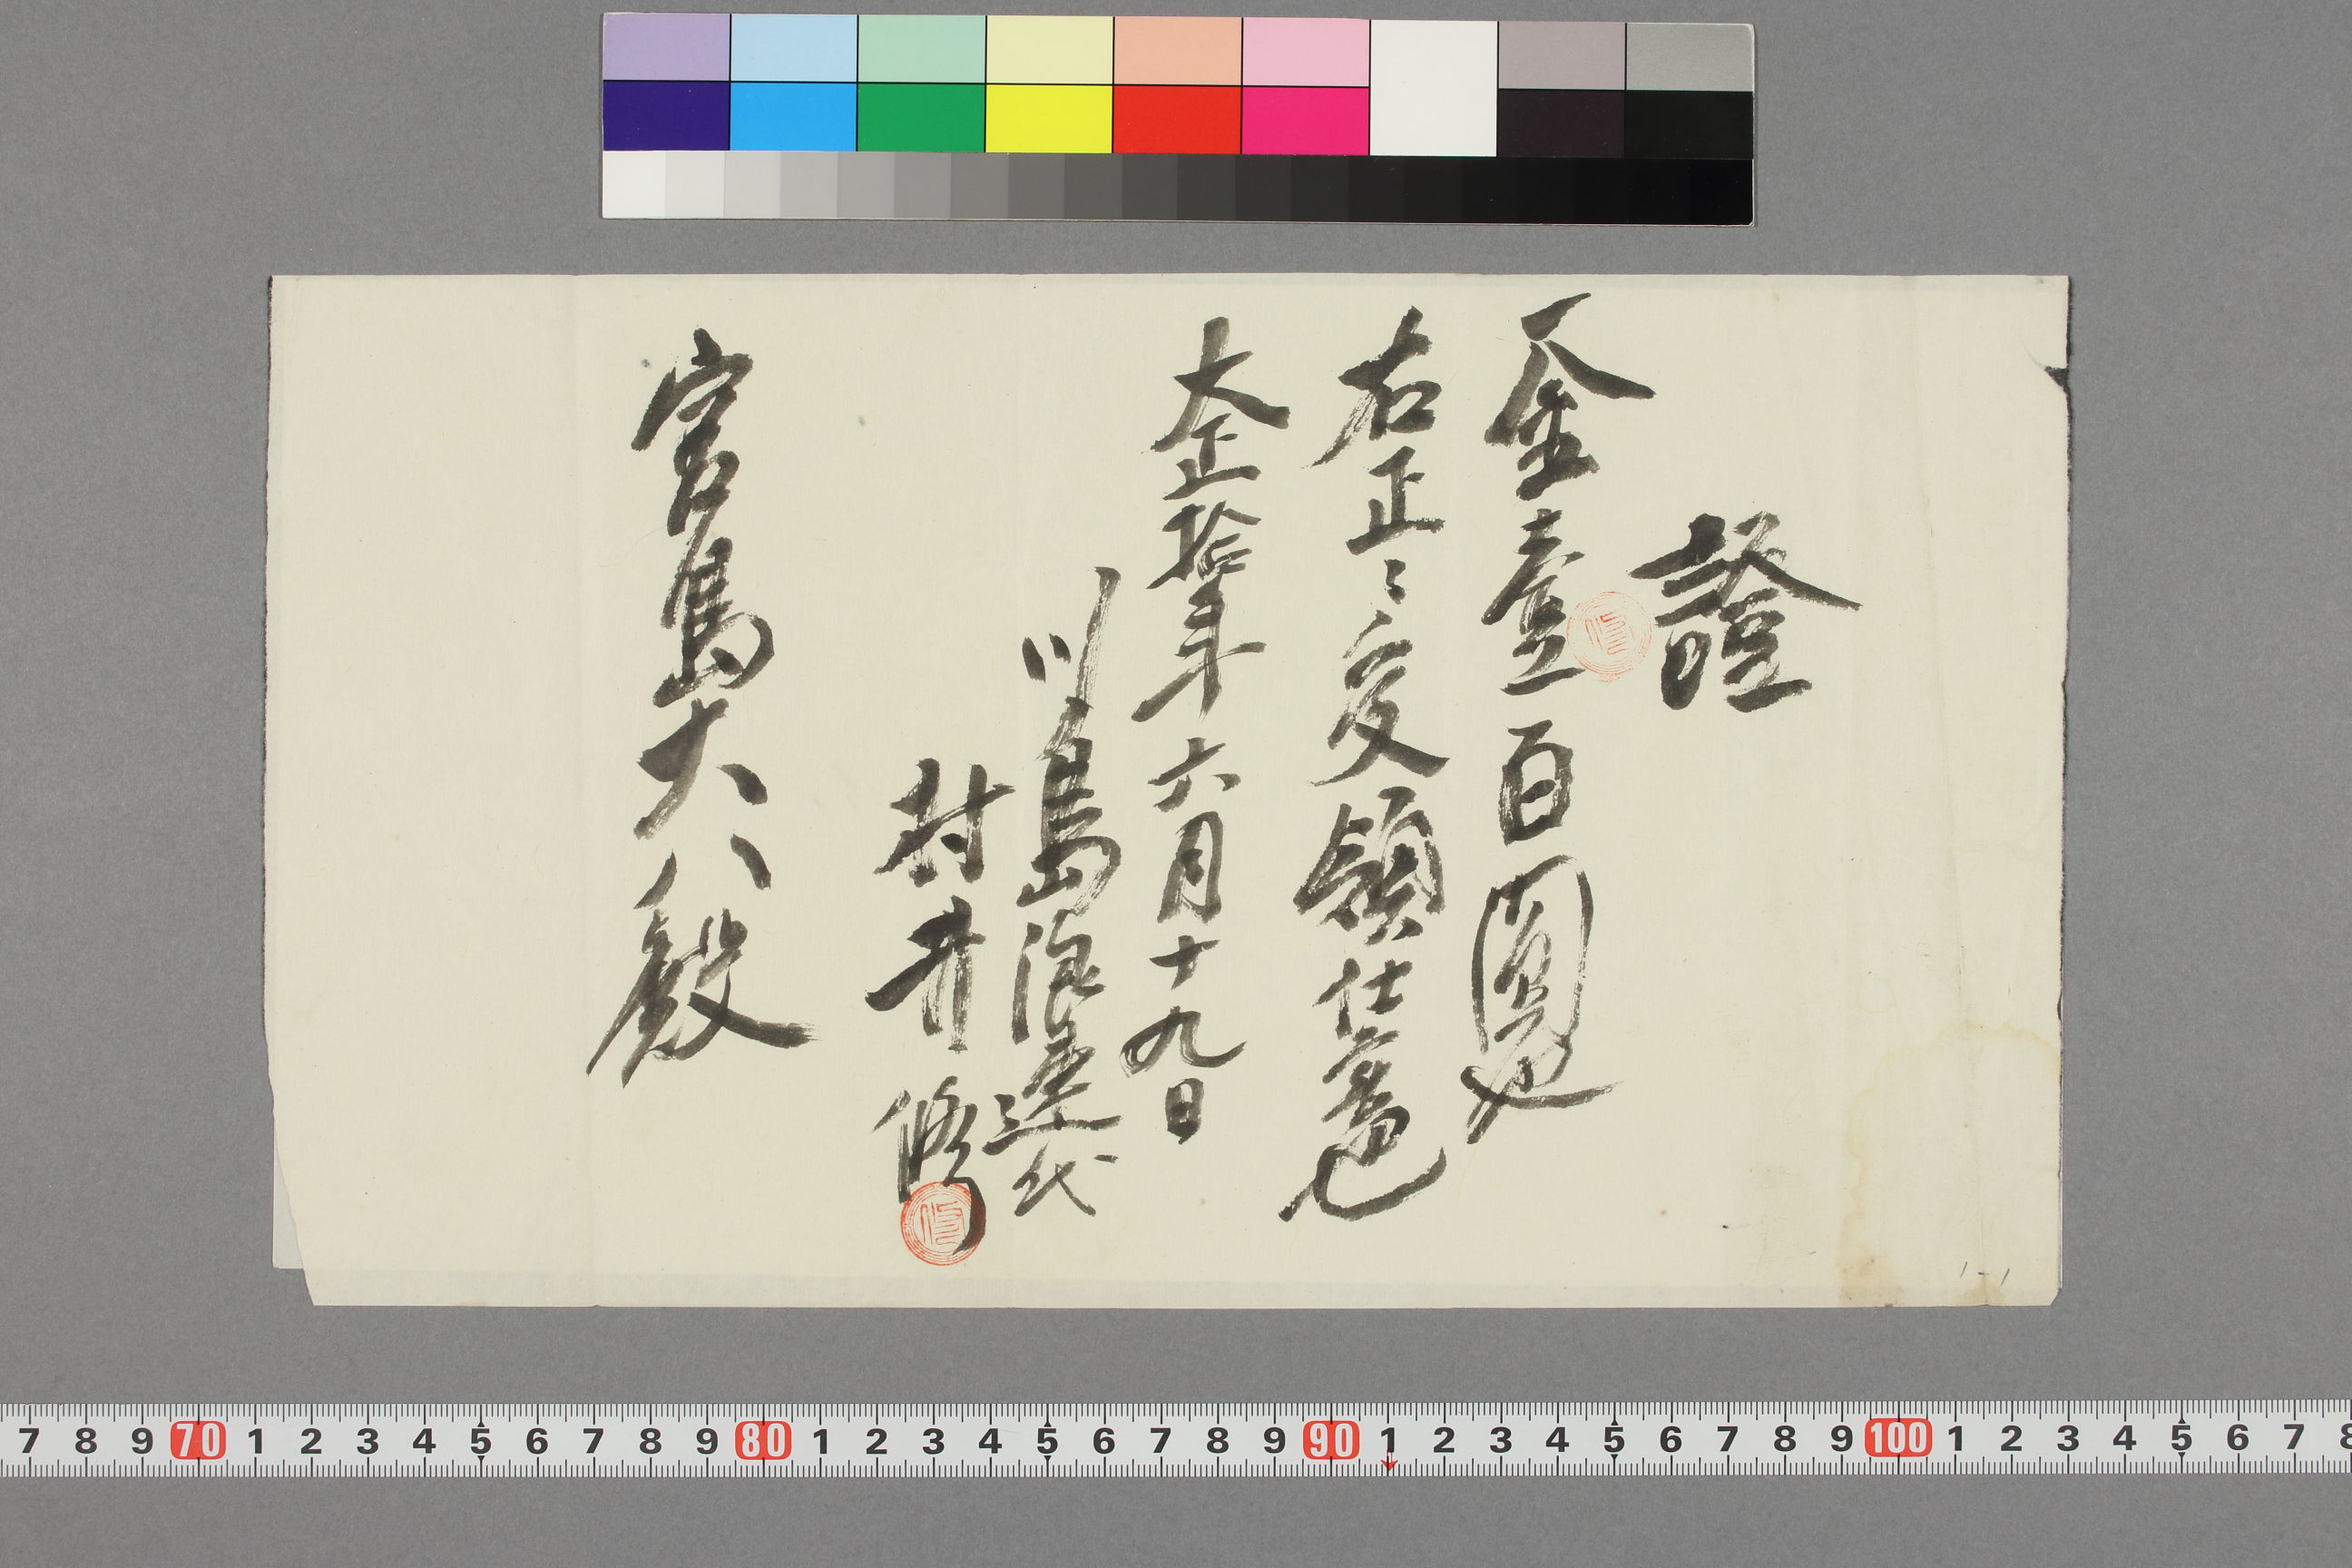 證
金壹百圓也
右正ニ受領仕也
大正拾年六月十九日
川島浪速代
村井修
宮島大八殿
修
修
1-1
7 8 9 70 1 2 3 4 5 6 7 8 9 80 1 2 3 4 5 6 7 8 9 90 1 2 3 4 5 6 7 8 9 100 1 2 3 4 5 6 7 8